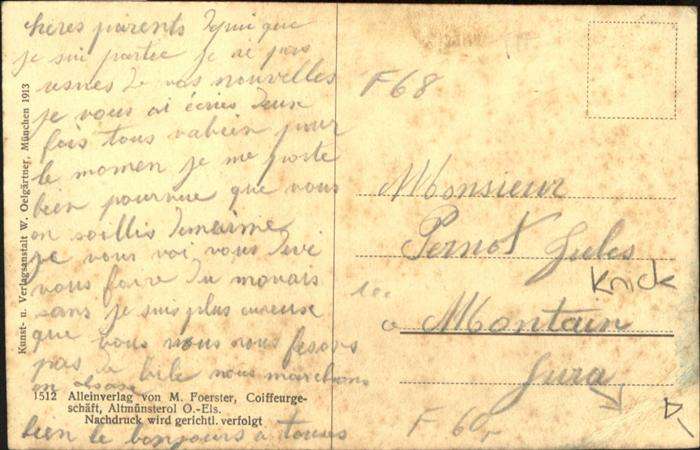 chères parents depui que
je sui partee je ne pas
de vos nouvelles
je vous ai écries deux
fois tous vabien pour
le momen je me porte
bien pourvue que vous
on soillis demaime
je vous voi vous
vous faire du movais
sans je suis plus
que vous nous fesons
pas de bile nous marchons
on alsase
bien le bonjours a toutes
Kunst- u. Verlagsanstalt W. Oelgärtner, München 1913
1512 Alleinverlag von M. Foerster, Coiffeurge-
schäft, Altmünsterol O.-Els.
Nachdruck wird gerichtl. verfolgt
F68
Monsieur
Pernot Jules
Knick
a Montain
Jura
F 60